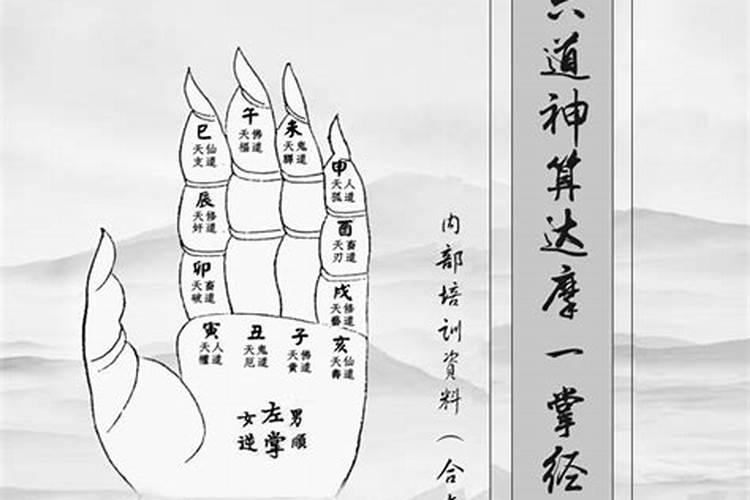 六道神算达摩一掌经
内部培训資料（合
巳
天支 仙道
午
天福 佛道
未
天驛 鬼道
申
天孤 人道
辰
天奸 修道
酉
天刃 畜道
卯
天破 畜道
戌
天藝 修道
寅
天權 人道
丑
天厄 鬼道
子
天貴 佛道
亥
天壽 仙道
女逆 左掌 男順